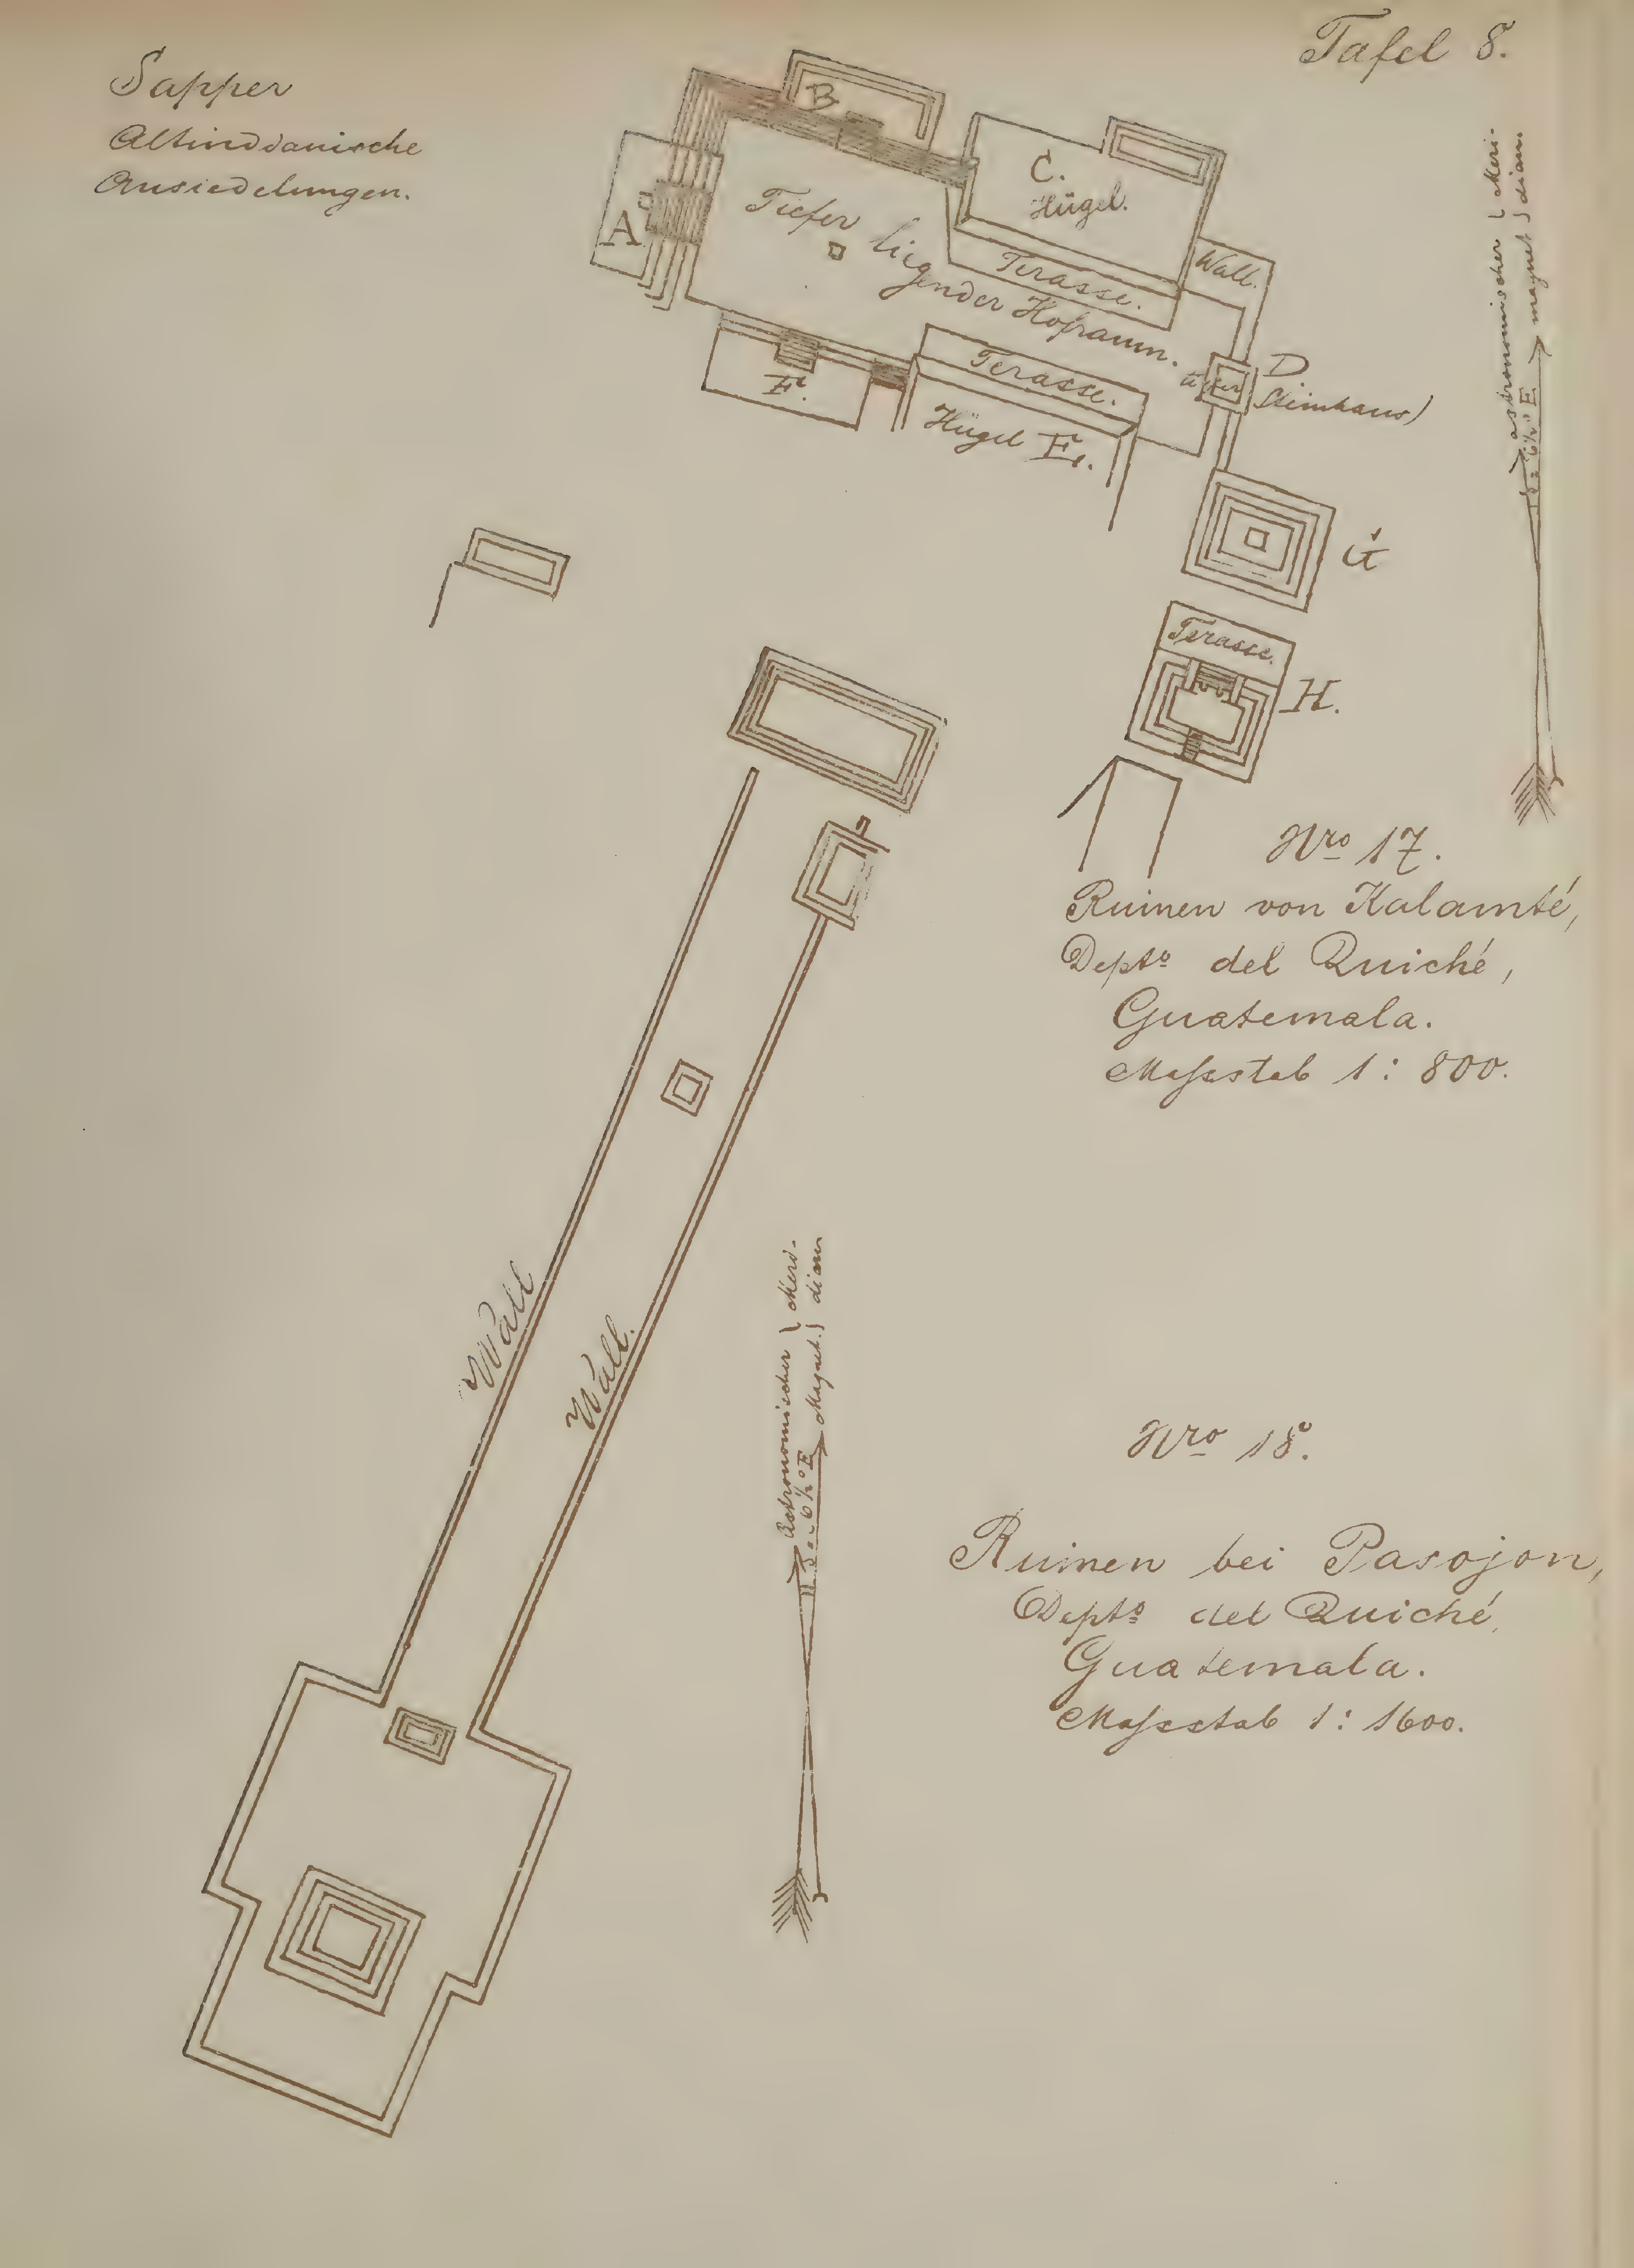 Tafel 8.
Sapper
Altindianische
Ansiedelungen.
B
C.
Hügel.
A
Tiefer liegender Hofraum.
Terasse.
Wall.
Terasse.
D
(Steinhaus)
F.
Hügel E.
G
Terasse.
H.
astronomischer } Meri-
magnet } dian
δ = 6½° E
Nro 17.
Ruinen von Kalamté,
Depto del Quiché,
Guatemala.
Massstab 1 : 800.
Wall
Wall.
Astronomischer } Meri-
Magnet. } dian
δ = 6½° E
Nro 18.
Ruinen bei Pasojon,
Depto del Quiché,
Guatemala.
Massstab 1 : 1600.